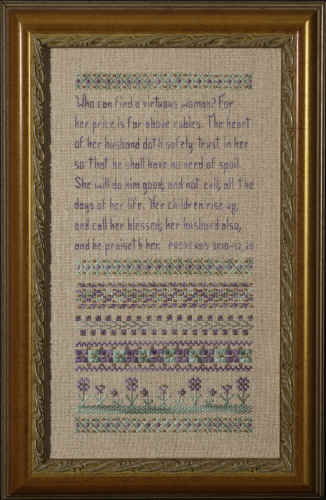 Who can find a virtuous woman? For
her price is far above rubies. The heart
of her husband doth safely trust in her
so that he shall have no need of spoil.
She will do him good, and not evil, all the
days of her life. Her children rise up,
and call her blessed; her husband also,
and he praiseth her. PROVERBS 31:10-12, 28